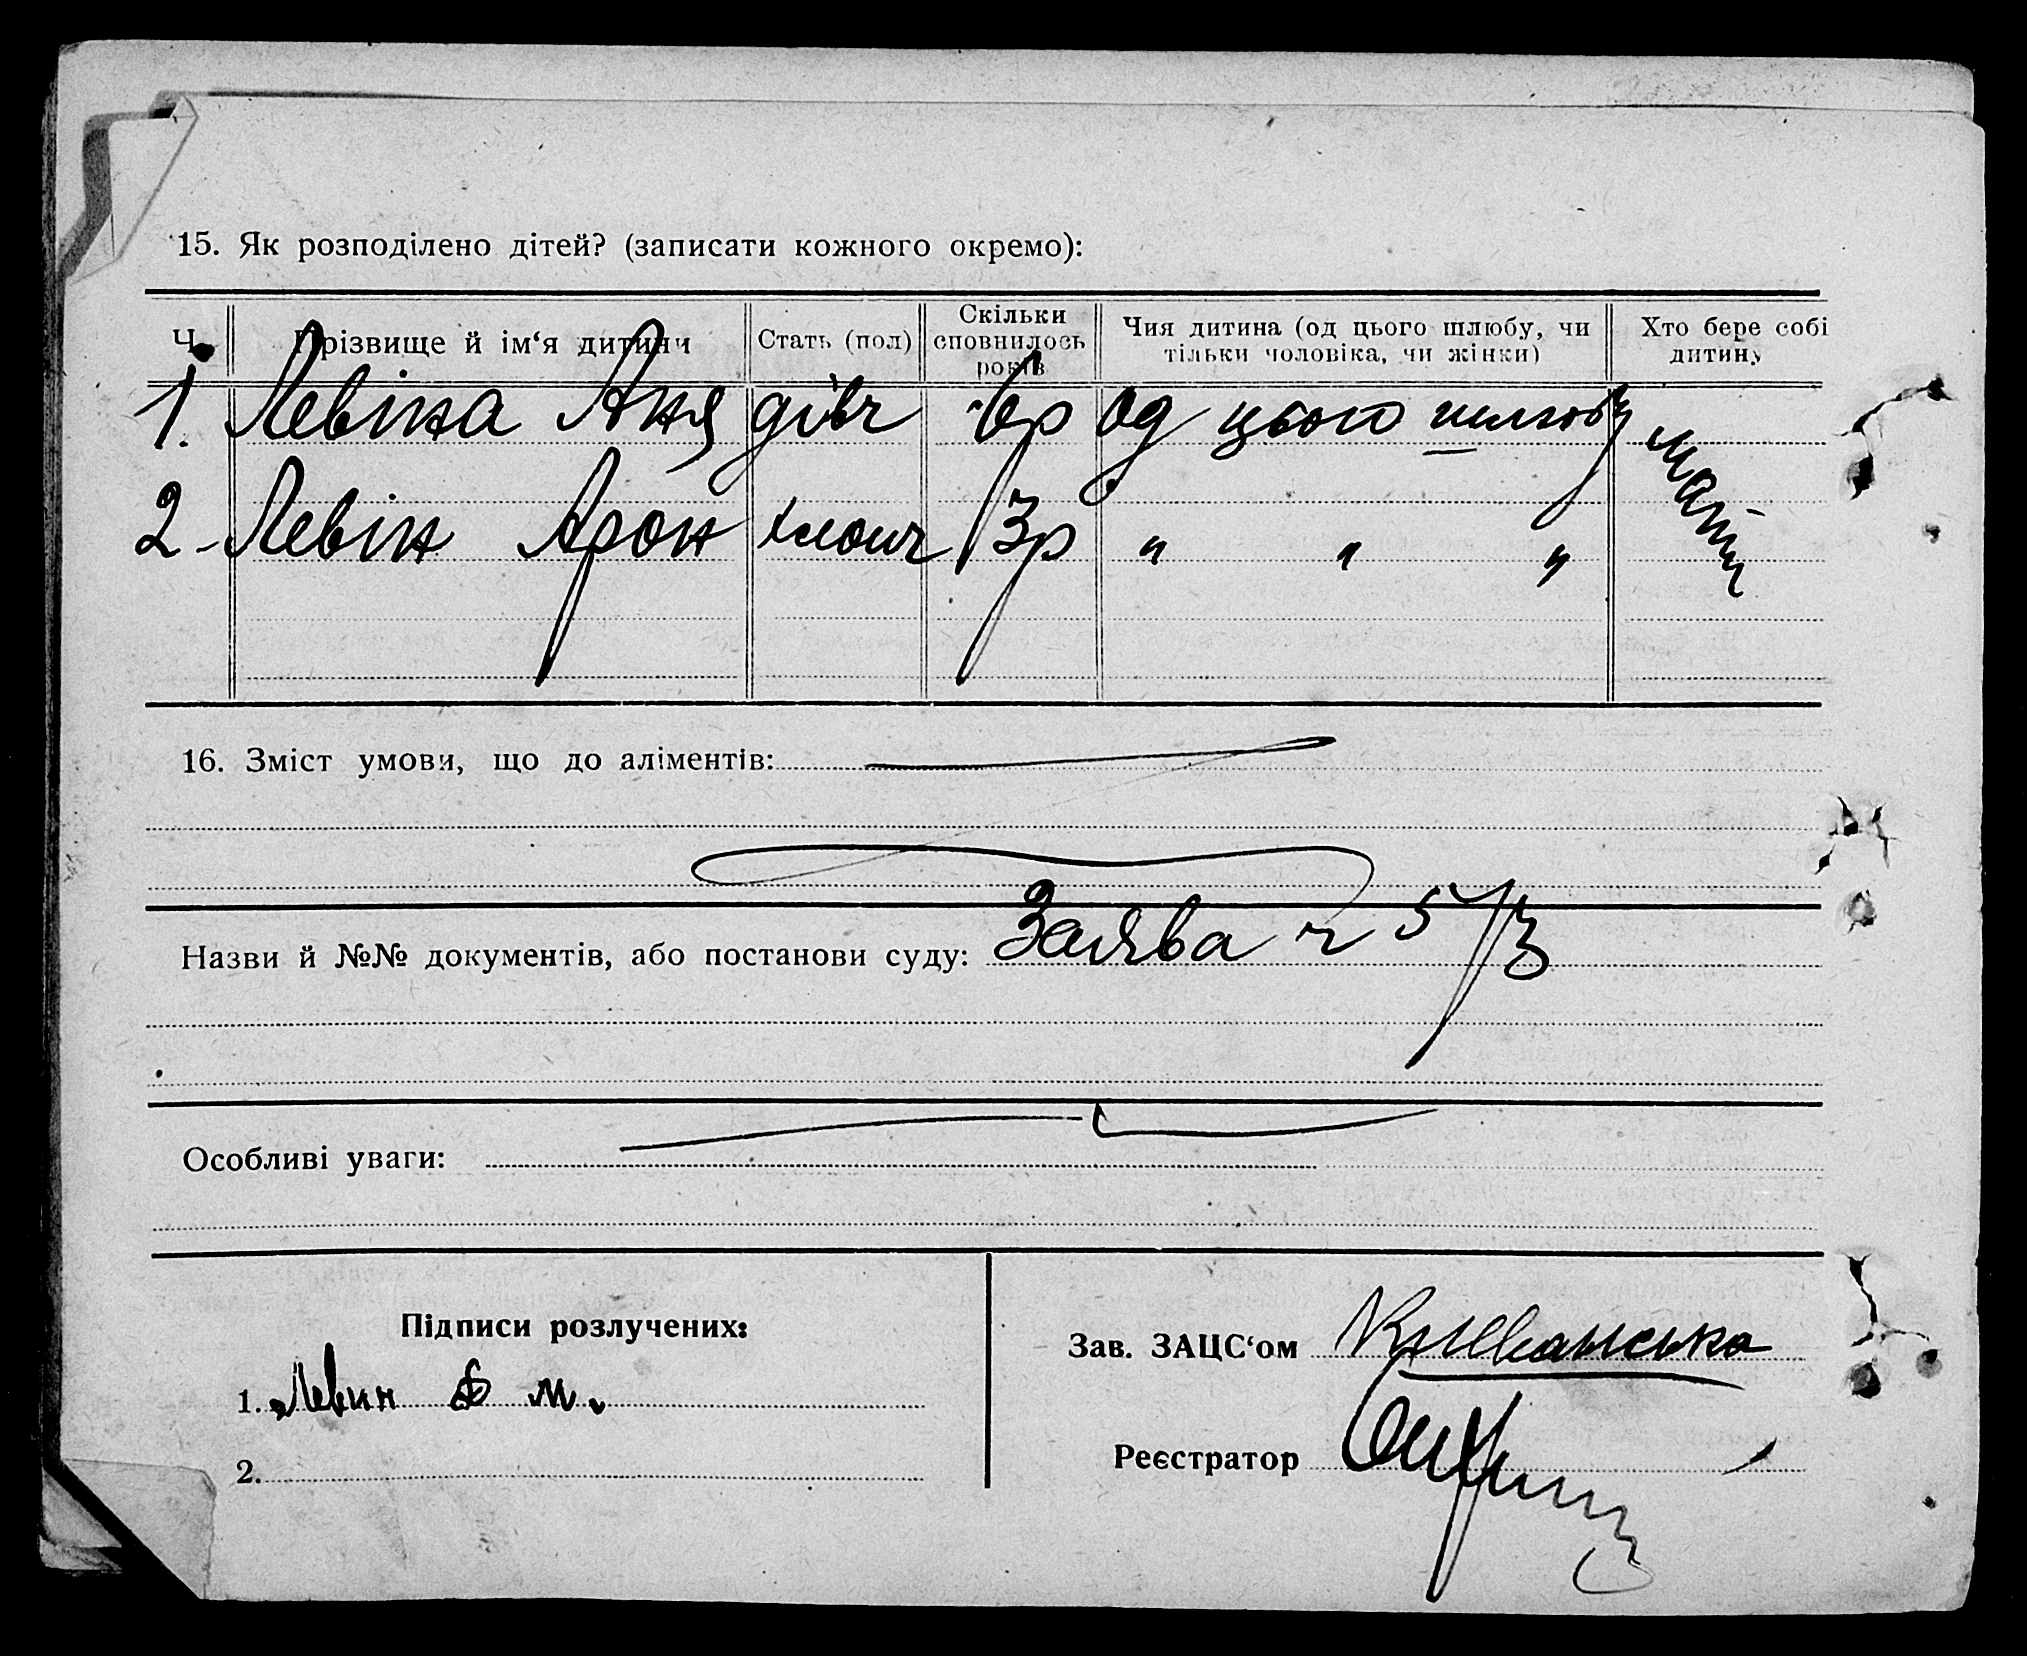 15. Як розподілено дітей? (записати кожного окремо):
Ч. Прізвище й ім‘я дитини Стать (пол) Скільки сповнилось років Чия дитина (од цього шлюбу, чи тільки чоловіка, чи жінки) Хто бере собі дитину
1. Левіна Аня дівч 6р од цього шлюбу мати
2 - Левін Арон хлопч 3р " " "
16. Зміст умови, що до аліментів:
Назви й №№ документів, або постанови суду: Заява ч 5/3
Особливі уваги:
Підписи розлучених:
Зав. ЗАЦС‘ом
1. Левин м.
Реєстратор
2.